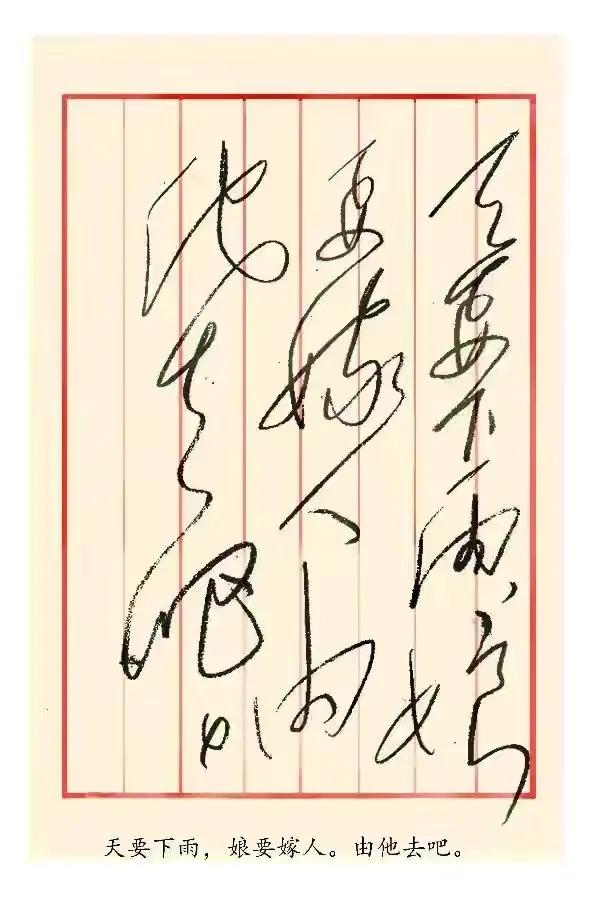 天要下雨,娘
要嫁人由
他去吧
天要下雨，娘要嫁人。由他去吧。